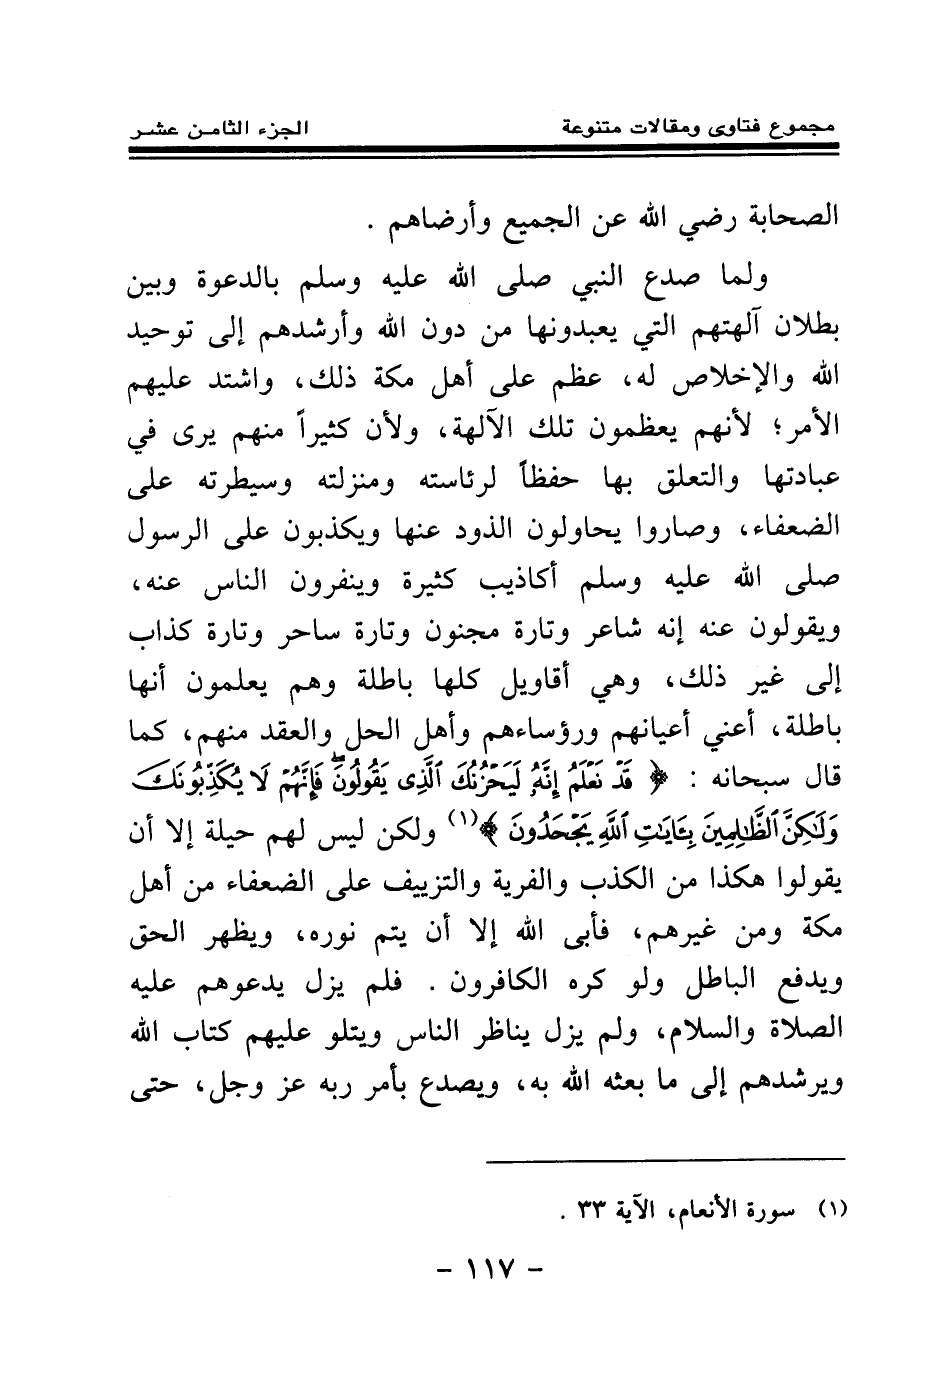 مجموع فتاوى ومقالات متنوعة الجزء الثامن عشر
الصحابة رضي الله عن الجميع وأرضاهم .
ولما صدع النبي صلى الله عليه وسلم بالدعوة وبين
بطلان آلهتهم التي يعبدونها من دون الله وأرشدهم إلى توحيد
الله والإخلاص له، عظم على أهل مكة ذلك، واشتد عليهم
الأمر؛ لأنهم يعظمون تلك الآلهة، ولأن كثيراً منهم يرى في
عبادتها والتعلق بها حفظاً لرئاسته ومنزلته وسيطرته على
الضعفاء، وصاروا يحاولون الذود عنها ويكذبون على الرسول
صلى الله عليه وسلم أكاذيب كثيرة وينفرون الناس عنه،
ويقولون عنه إنه شاعر وتارة مجنون وتارة ساحر وتارة كذاب
إلى غير ذلك، وهي أقاويل كلها باطلة وهم يعلمون أنها
باطلة، أعني أعيانهم ورؤساءهم وأهل الحل والعقد منهم، كما
قال سبحانه : ﴿ قَدْ نَعْلَمُ إِنَّهُۥ لَيَحْزُنُكَ ٱلَّذِى يَقُولُونَۖ فَإِنَّهُمْ لَا يُكَذِّبُونَكَ
وَلَٰكِنَّ ٱلظَّٰلِمِينَ بِـَٔايَٰتِ ٱللَّهِ يَجْحَدُونَ ﴾(١) ولكن ليس لهم حيلة إلا أن
يقولوا هكذا من الكذب والفرية والتزييف على الضعفاء من أهل
مكة ومن غيرهم، فأبى الله إلا أن يتم نوره، ويظهر الحق
ويدفع الباطل ولو كره الكافرون . فلم يزل يدعوهم عليه
الصلاة والسلام، ولم يزل يناظر الناس ويتلو عليهم كتاب الله
ويرشدهم إلى ما بعثه الله به، ويصدع بأمر ربه عز وجل، حتى
(١) سورة الأنعام، الآية ٣٣ .
- ١١٧ -